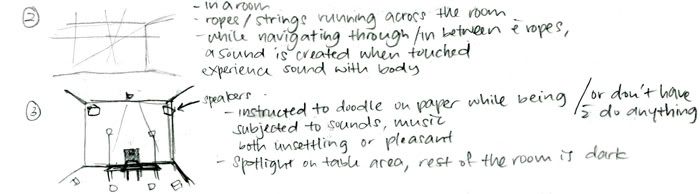 ②
- in a room
- ropes/strings running across the room
- while navigating through/in between ropes,
a sound is created when touched
experience sound with body
③
speakers
- instructed to doodle on paper while being /or don't have
subjected to sounds, music do anything
both unsettling or pleasant
- spotlight on table area, rest of the room is dark